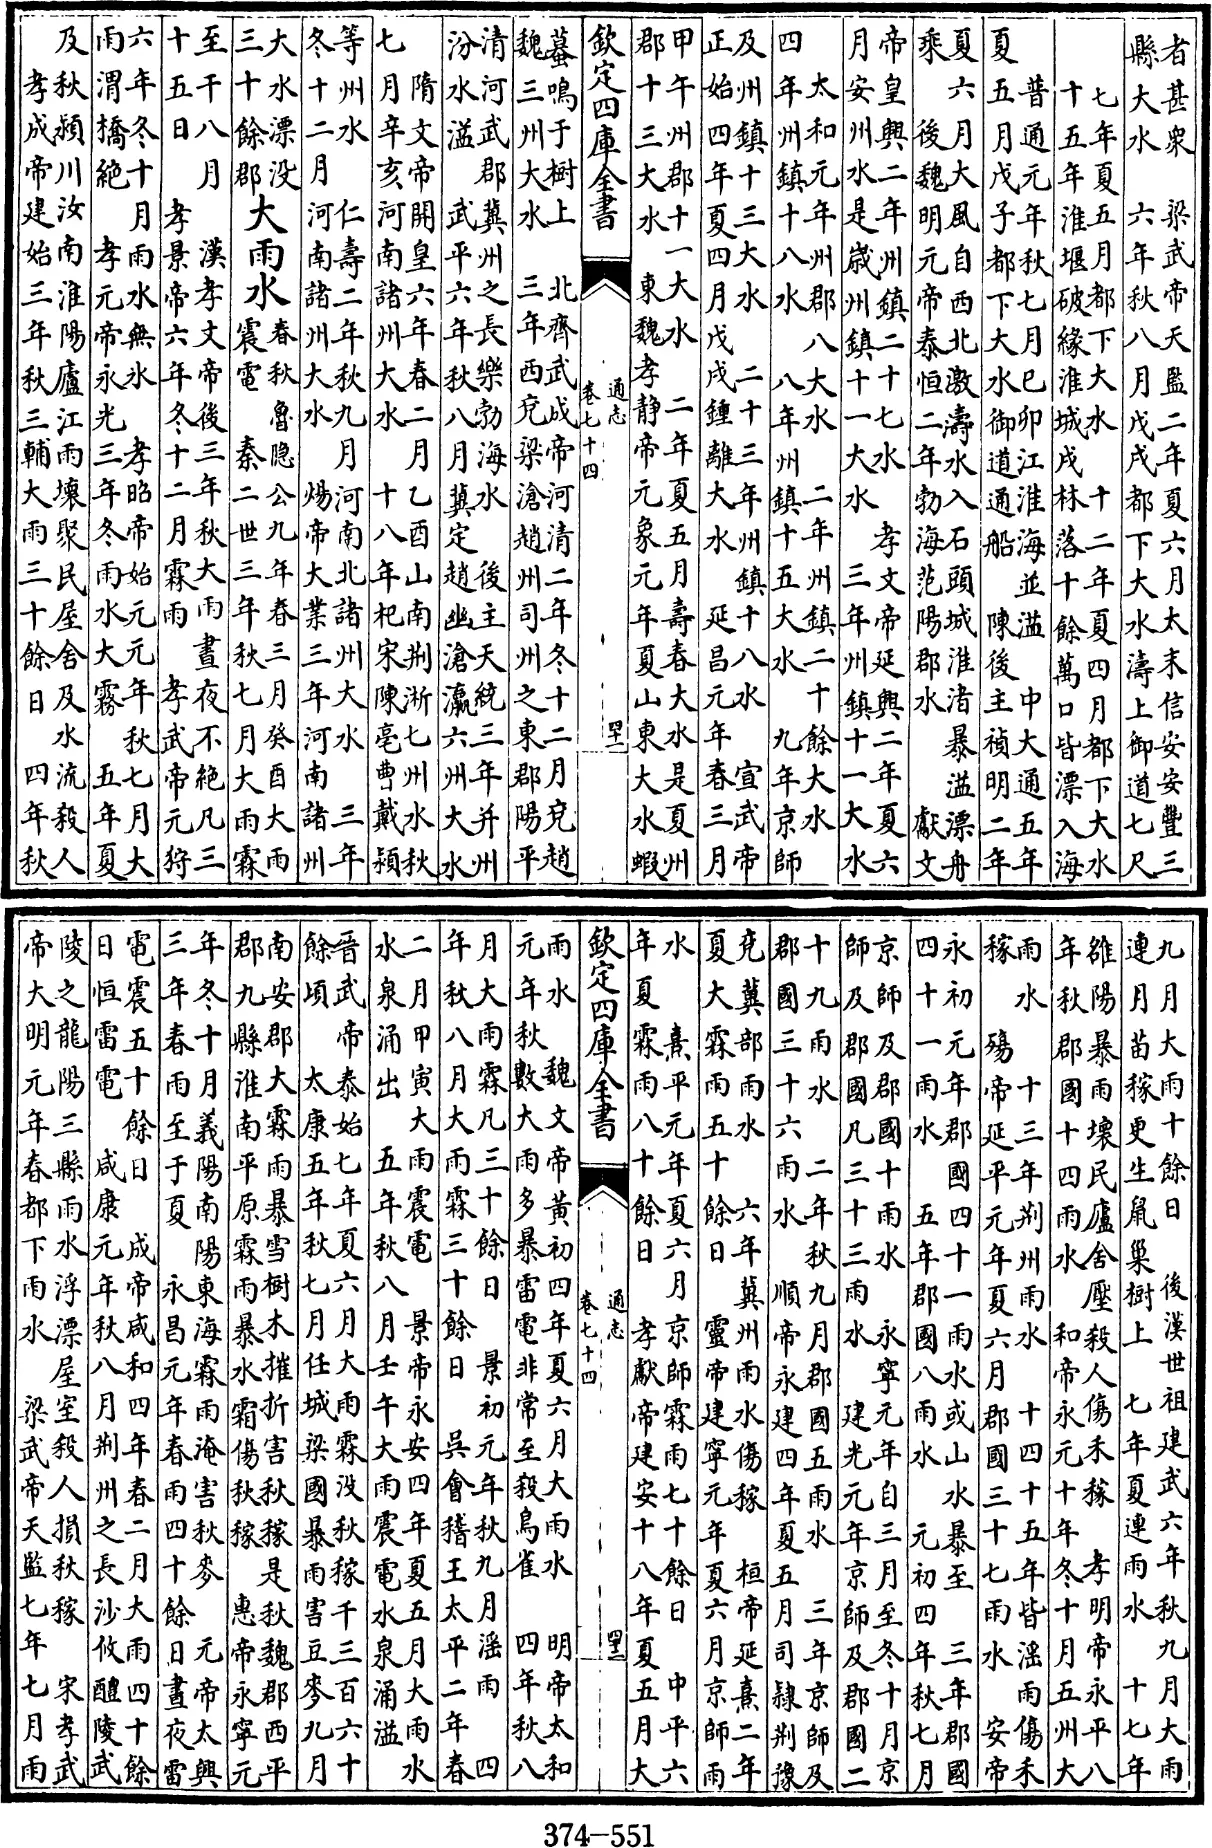 者甚衆　梁武帝天監二年夏六月太末信安安豐三
縣大水　六年秋八月戊戌都下大水濤上御道七尺
七年夏五月都下大水　十二年夏四月都下大水
十五年淮堰破緣淮城戍林落十餘萬口皆漂入海
普通元年秋七月己卯江淮海並溢　中大通五年
夏五月戊子都下大水御道通船　陳後主禎明二年
夏六月大風自西北激濤水入石頭城淮渚暴溢漂舟
乘　後魏明元帝泰恒二年勃海范陽郡水　獻文
帝皇興二年州鎮二十七水　孝文帝延興二年夏六
月安州水是歲州鎮十一大水　三年州鎮十一大水
太和元年州郡八大水　二年州鎮二十餘大水
四年州鎮十八水　八年州鎮十五大水　九年京師
及州鎮十三大水　二十三年州鎮十八水　宣武帝
正始四年夏四月戊戌鍾離大水　延昌元年春三月
甲午州郡十一大水　二年夏五月壽春大水是夏州
郡十三大水　東魏孝静帝元象元年夏山東大水蝦
欽定四庫全書
通志
卷七十四
蟇鳴于樹上　北齊武成帝河清二年冬十二月兗趙
魏三州大水　三年西兗梁滄趙州司州之東郡陽平
清河武郡冀州之長樂勃海水　後主天統三年并州
汾水溢　武平六年秋八月冀定趙幽滄瀛六州大水
隋文帝開皇六年春二月乙酉山南荆淅七州水秋
七月辛亥河南諸州大水　十八年杞宋陳亳曹戴潁
等州水　仁壽二年秋九月河南北諸州大水　三年
冬十二月河南諸州大水　煬帝大業三年河南諸州
大水漂没
三十餘郡
大雨水
春秋魯隱公九年春三月癸酉大雨
震電　秦二世三年秋七月大雨霖
至于八月　漢孝文帝後三年秋大雨晝夜不絶凡三
十五日　孝景帝六年冬十二月霖雨　孝武帝元狩
六年冬十月雨水無氷　孝昭帝始元元年秋七月大
雨渭橋絶　孝元帝永光三年冬雨水大霧　五年夏
及秋潁川汝南淮陽廬江雨壞聚民屋舍及水流殺人
孝成帝建始三年秋三輔大雨三十餘日　四年秋
九月大雨十餘日　後漢世祖建武六年秋九月大雨
連月苗稼更生鼠巢樹上　七年夏連雨水　十七年
雒陽暴雨壞民廬舍壓殺人傷禾稼　孝明帝永平八
年秋郡國十四雨水　和帝永元十年冬十月五州大
雨水　十三年荆州雨水　十四十五年皆滛雨傷禾
稼　殤帝延平元年夏六月郡國三十七雨水　安帝
永初元年郡國四十一雨水或山水暴至　三年郡國
四十一雨水　五年郡國八雨水　元初四年秋七月
京師及郡國十雨水　永寧元年自三月至冬十月京
師及郡國凡三十三雨水　建光元年京師及郡國二
十九雨水　二年秋九月郡國五雨水　三年京師及
郡國三十六雨水　順帝永建四年夏五月司隸荆豫
兗冀部雨水　六年冀州雨水傷稼　桓帝延熹二年
夏大霖雨五十餘日　靈帝建寧元年夏六月京師雨
水　熹平元年夏六月京師霖雨七十餘日　中平六
年夏霖雨八十餘日　孝獻帝建安十八年夏五月大
欽定四庫全書
通志
卷七十四
雨水　魏文帝黃初四年夏六月大雨水　明帝太和
元年秋數大雨多暴雷電非常至殺鳥雀　四年秋八
月大雨霖凡三十餘日　景初元年秋九月滛雨　四
年秋八月大雨霖三十餘日　吳會稽王太平二年春
二月甲寅大雨震電　景帝永安四年夏五月大雨水
水泉涌出　五年秋八月壬午大雨震電水泉涌溢
晉武帝泰始七年夏六月大雨霖没秋稼千三百六十
餘頃　太康五年秋七月任城梁國暴雨害豆麥九月
南安郡大霖雨暴雪樹木摧折害秋稼是秋魏郡西平
郡九縣淮南平原霖雨暴水霜傷秋稼　惠帝永寧元
年冬十月義陽南陽東海霖雨淹害秋麥　元帝太興
三年春雨至于夏　永昌元年春雨四十餘日晝夜雷
電震五十餘日　成帝咸和四年春二月大雨四十餘
日恒雷電　咸康元年秋八月荆州之長沙攸醴陵武
陵之龍陽三縣雨水浮漂屋室殺人損秋稼　宋孝武
帝大明元年春都下雨水　梁武帝天監七年七月雨
374-551